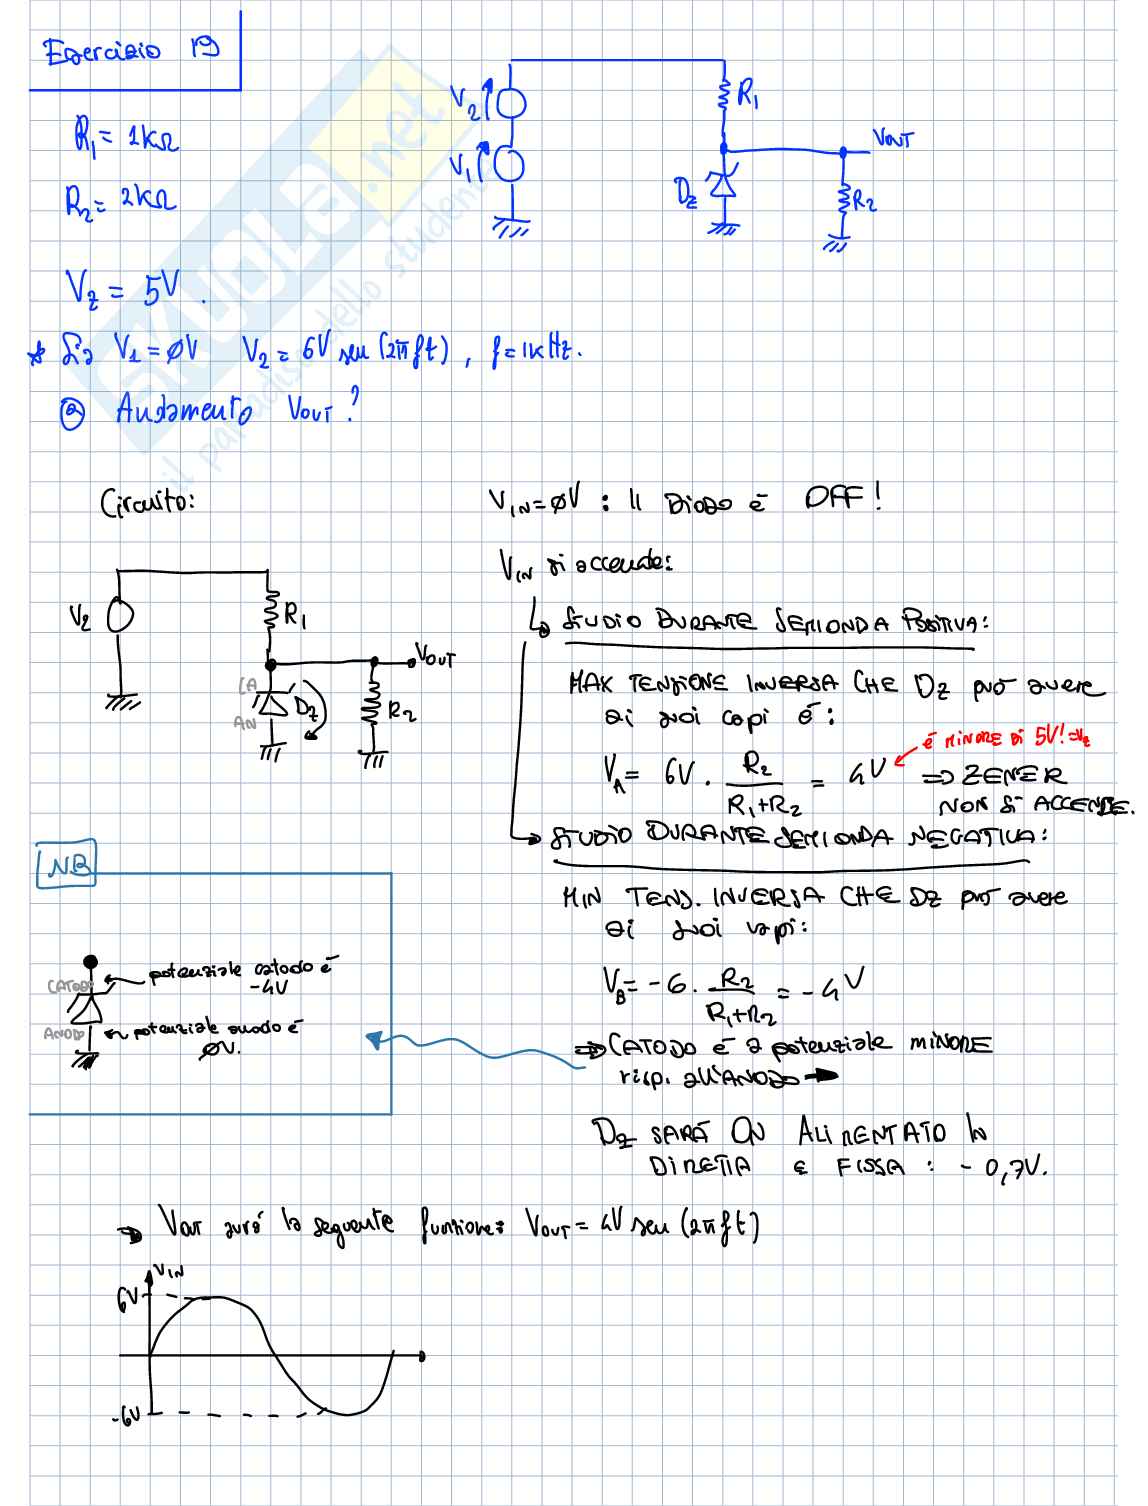 Esercizio 19
R₁ = 1kΩ
R₂ = 2kΩ
V₂
V₁
R₁
VOUT
Dz
R₂
Vz = 5V.
* Sia V₁ = ØV V₂ = 6V sen (2πft), f = 1kHz.
ⓐ Andamento VOUT?
SKUOLA.net
il paradiso dello studente
Circuito:
V₂
R₁
VOUT
CA
AN
Dz
R₂
VIN = ØV : Il DIODO è OFF!
VIN si accende:
↳ STUDIO DURANTE SEMIONDA POSITIVA:
MAX TENSIONE INVERSA CHE Dz può avere
ai suoi capi è:
è MINORE DI 5V! = Vz
VA = 6V · R₂/(R₁+R₂) = 4V ⇒ ZENER
NON SI ACCENDE.
→ STUDIO DURANTE SEMIONDA NEGATIVA:
MIN TENS. INVERSA CHE Dz può avere
ai suoi capi:
VB = -6 · R₂/(R₁+R₂) = -4V
⇒ CATODO è a potenziale MINORE
risp. all'ANODO →
Dz SARÀ ON ALIMENTATO IN
DIRETTA E FISSA : - 0,7V.
NB
CATODO
potenziale catodo è
-4V
ANODO
potenziale anodo è
ØV.
→ VOUT avrà la seguente funzione: VOUT = 4V sen (2πft)
VIN
6V
-6V